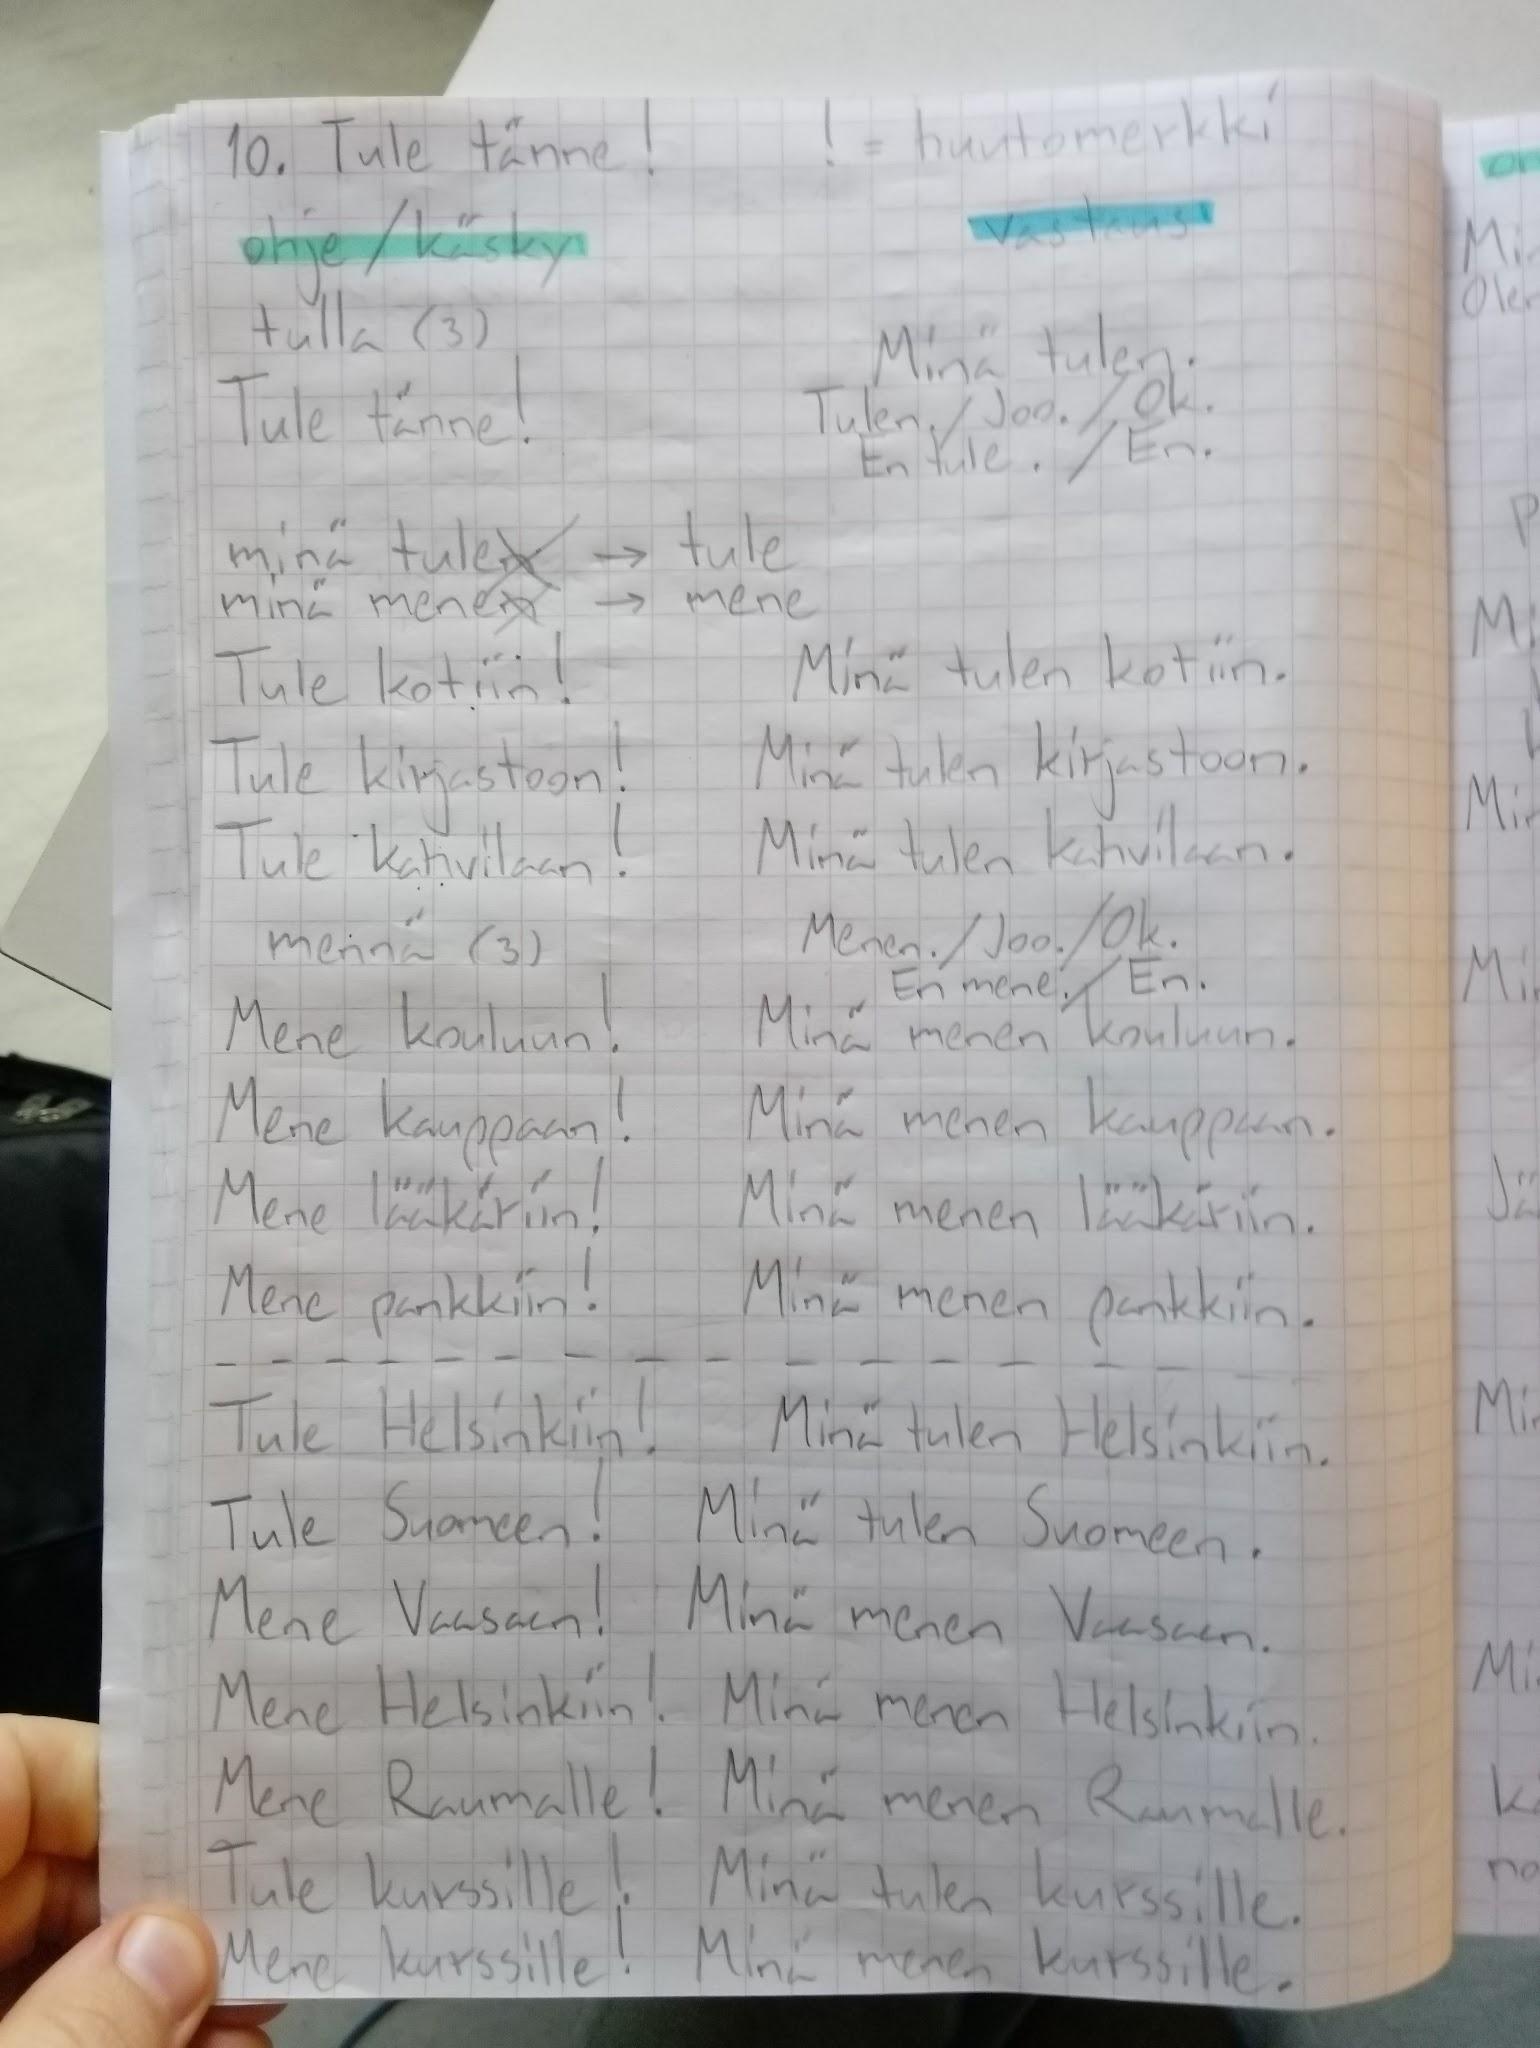 10. Tule tänne! ! = huutomerkki
ohje/käsky vastaus
tulla (3)
Minä tulen.
Tule tänne! Tulen./Joo./Ok.
En tule. / En.
minä tulen → tule
minä menen → mene
Tule kotiin! Minä tulen kotiin.
Tule kirjastoon! Minä tulen kirjastoon.
Tule kahvilaan! Minä tulen kahvilaan.
mennä (3) Menen./Joo./Ok.
En mene./En.
Mene kouluun! Minä menen kouluun.
Mene kauppaan! Minä menen kauppaan.
Mene lääkäriin! Minä menen lääkäriin.
Mene pankkiin! Minä menen pankkiin.
Tule Helsinkiin! Minä tulen Helsinkiin.
Tule Suomeen! Minä tulen Suomeen.
Mene Vaasaan! Minä menen Vaasaan.
Mene Helsinkiin! Minä menen Helsinkiin.
Mene Raumalle! Minä menen Raumalle.
Tule kurssille! Minä tulen kurssille.
Mene kurssille! Minä menen kurssille.